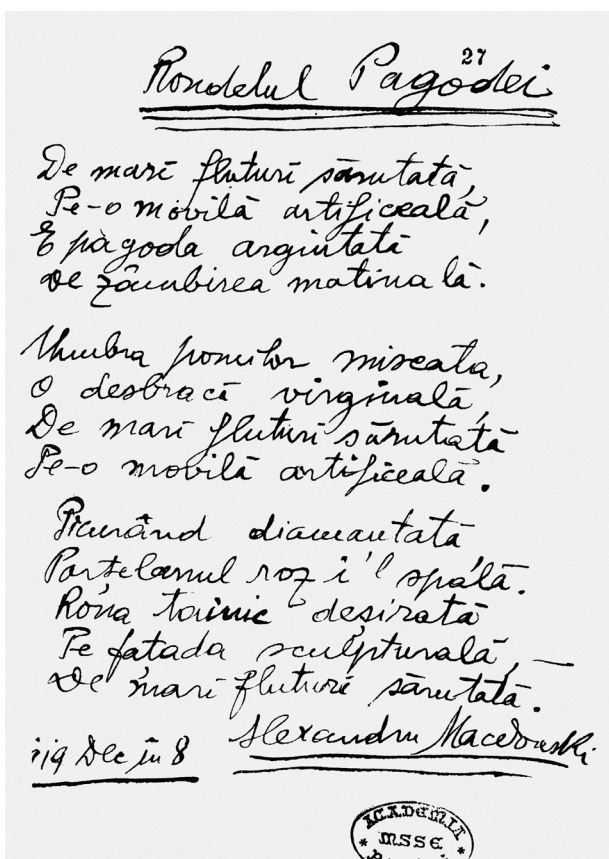 27
Rondelul Pagodei
De mari fluturi sărutată,
Pe-o movilă artificeală,
E pagoda argintată
De zâmbirea matinală.
Umbra pomilor miscata,
O desbracă virginală,
De mari fluturi sărutată
Pe-o movilă artificeală.
Picurând diamantată
Porțelanul roz i'l spălă.
Roua tainic deșirată
Pe fatada sculpturală, —
De mari fluturi sărutată.
Alexandru Macedonski
19 Dec în 8
ACADEMIA
MSSE